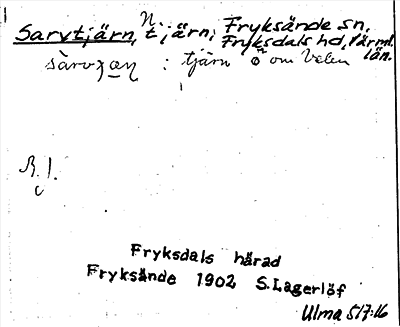 Sarvtjärn, N. tjärn; Fryksände sn,
Fryksdals hd, Värml. län.
: tjärn ö om Velen
Fryksdals härad
Fryksände 1902 S. Lagerlöf
Ulma 517:16